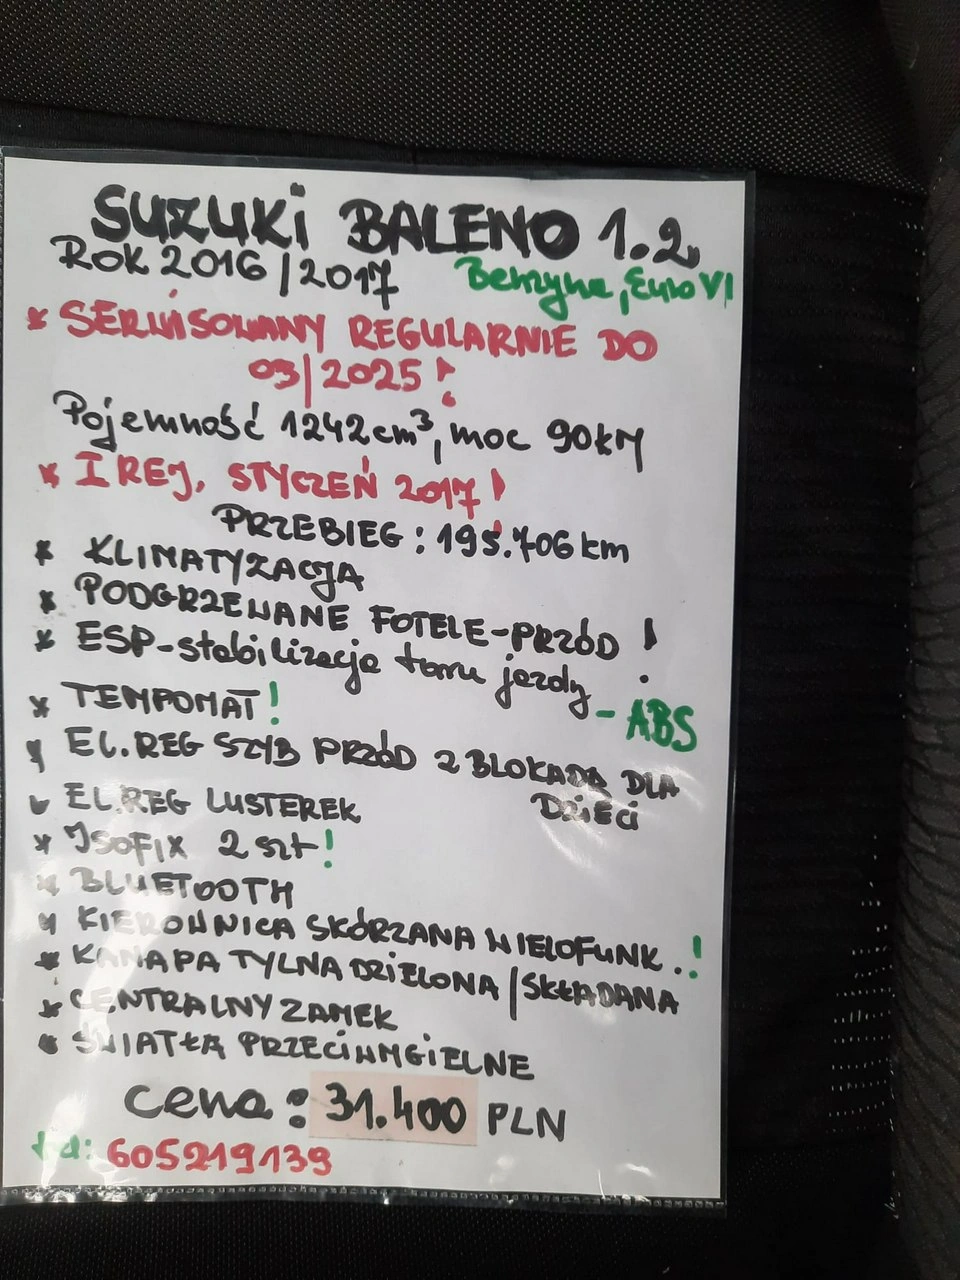 SUZUKI BALENO 1.2
ROK 2016/2017
Benzyna, Euro VI
* SERWISOWANY REGULARNIE DO
03/2025!
Pojemność 1242cm³, moc 90kM
* I REJ, STYCZEŃ 2017!
PRZEBIEG: 195.706 km
* KLIMATYZACJA
* PODGRZEWANE FOTELE-PRZÓD!
* ESP-stabilizacja toru jazdy
- ABS
* TEMPOMAT!
* EL.REG SZYB PRZÓD Z BLOKADĄ DLA
DZIECI
* EL.REG LUSTEREK
* ISOFIX 2 szt!
* BLUETOOTH
* KIEROWNICA SKÓRZANA WIELOFUNK.!
* KANAPA TYLNA DZIELONA/SKŁADANA
* CENTRALNY ZAMEK
* ŚWIATŁA PRZECIWMGIELNE
cena: 31.400 PLN
tel: 605219139